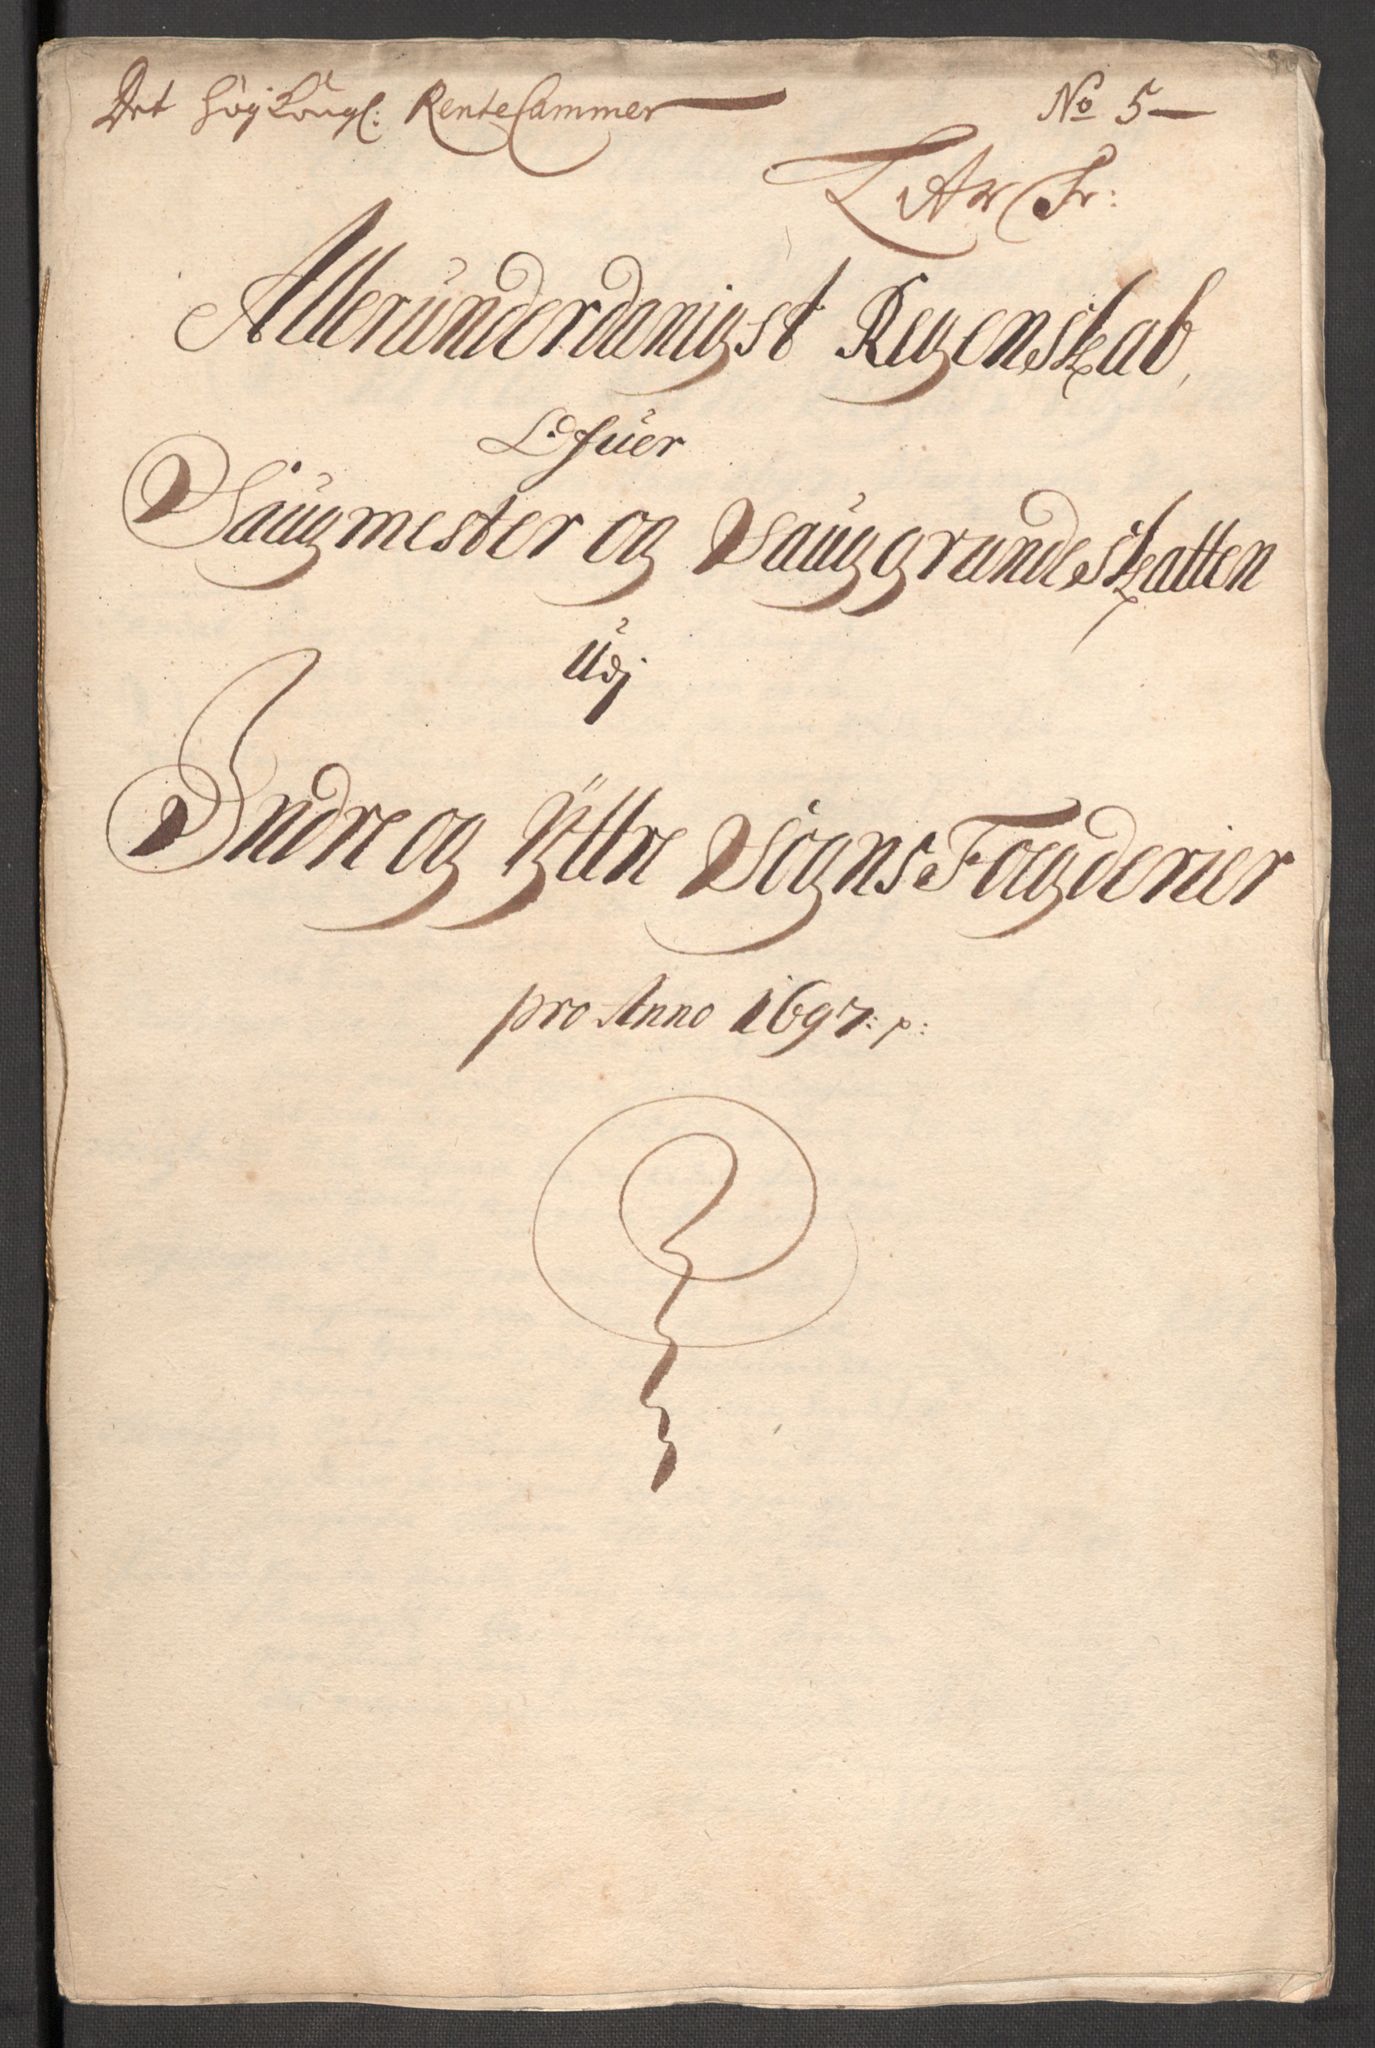 Det Høy Kongl: Rente Cammer
No 5
Allerunderdanigst Regenskab,
Ofuer
Saugmester og Sauggrundeskatten
Udj
Indre og Yttre Sogns Fougderier
pro Anno 1697: p: